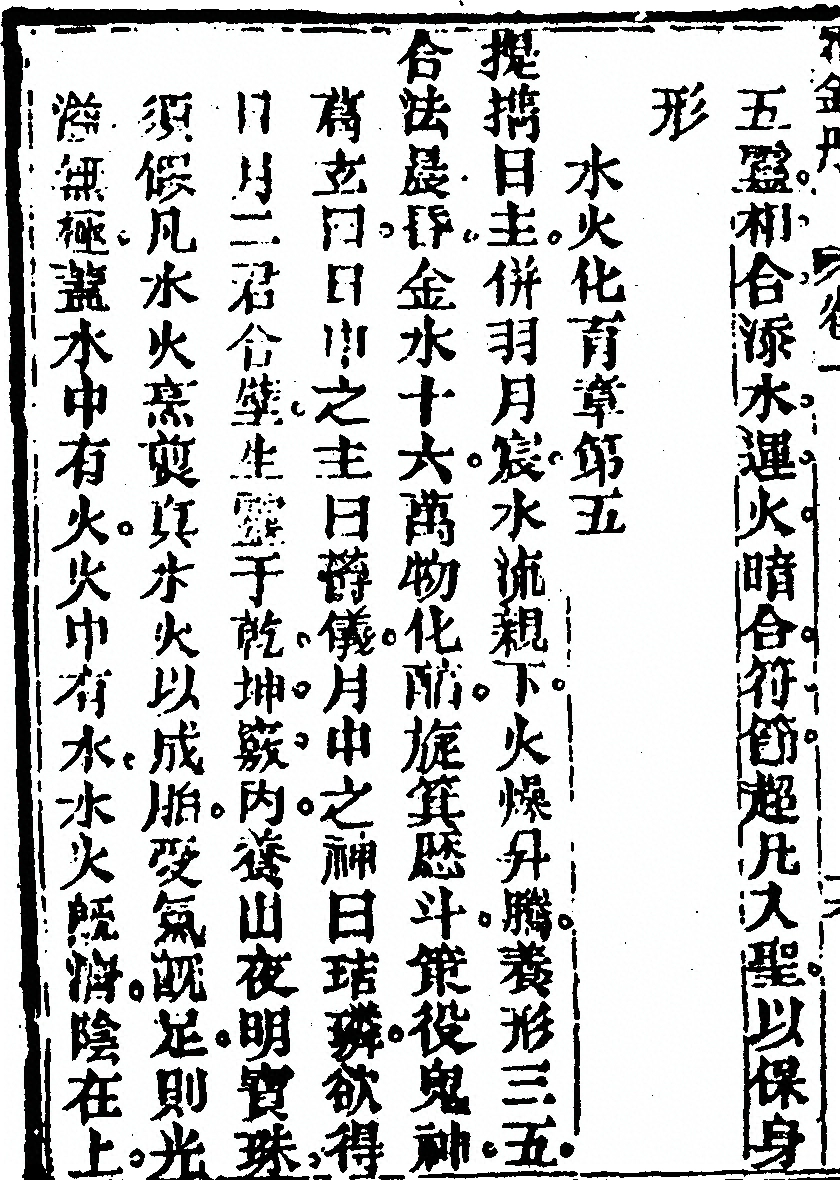 五靈相合添水運火暗合符節超凡入聖以保身
形
水火化育章第五
提攜日主併羽月宸水流親下火燥升騰養形三五
合法晨昏金水十六萬物化醇旋箕歷斗策役鬼神
葛玄曰日中之主曰鬱儀月中之神曰璘欲得
日月二君合孽生靈于乾坤竅内養出夜明寶珠
須假凡水火烹煎真水火以成胎受氣既足則光
溢無極蓋水中有火火中有水水火既濟陰在上